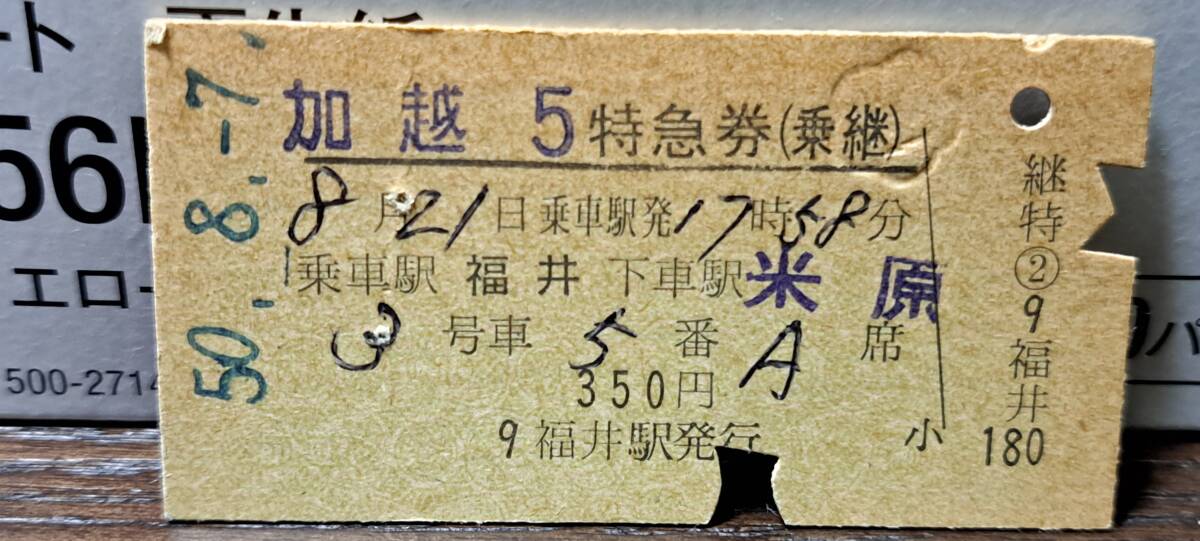 50.-8.-7.
加越 5 特急券(乗継)
8月21日乗車駅発17時58分
乗車駅 福井 下車駅 米原
3号車 5番 A席
350円
9 福井駅発行
小
継特②9福井
180
ート
56
エロー
500-2714